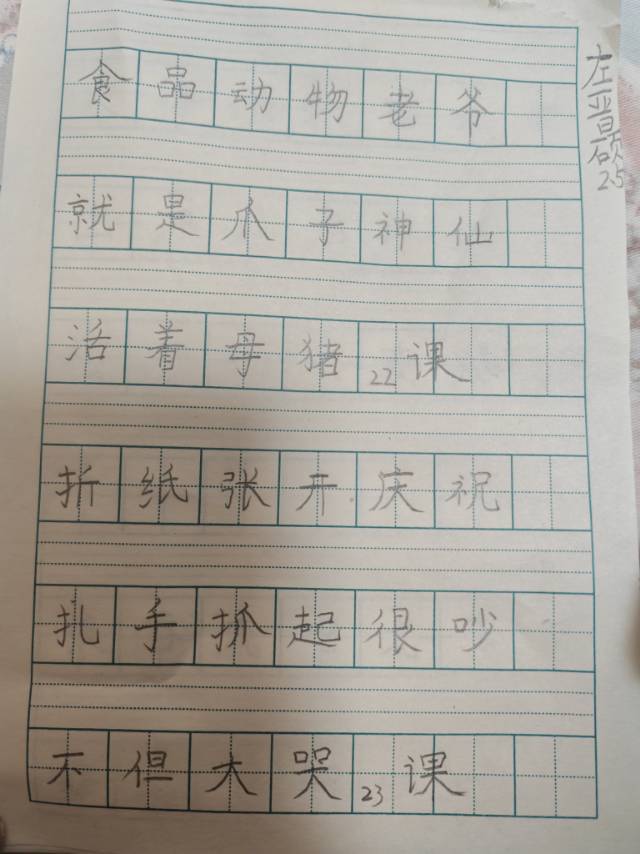 食品动物老爷
就是爪子神仙
活着母猪22课
折纸张开庆祝
扎手抓起很吵
不但大哭23课
左晋硕
25